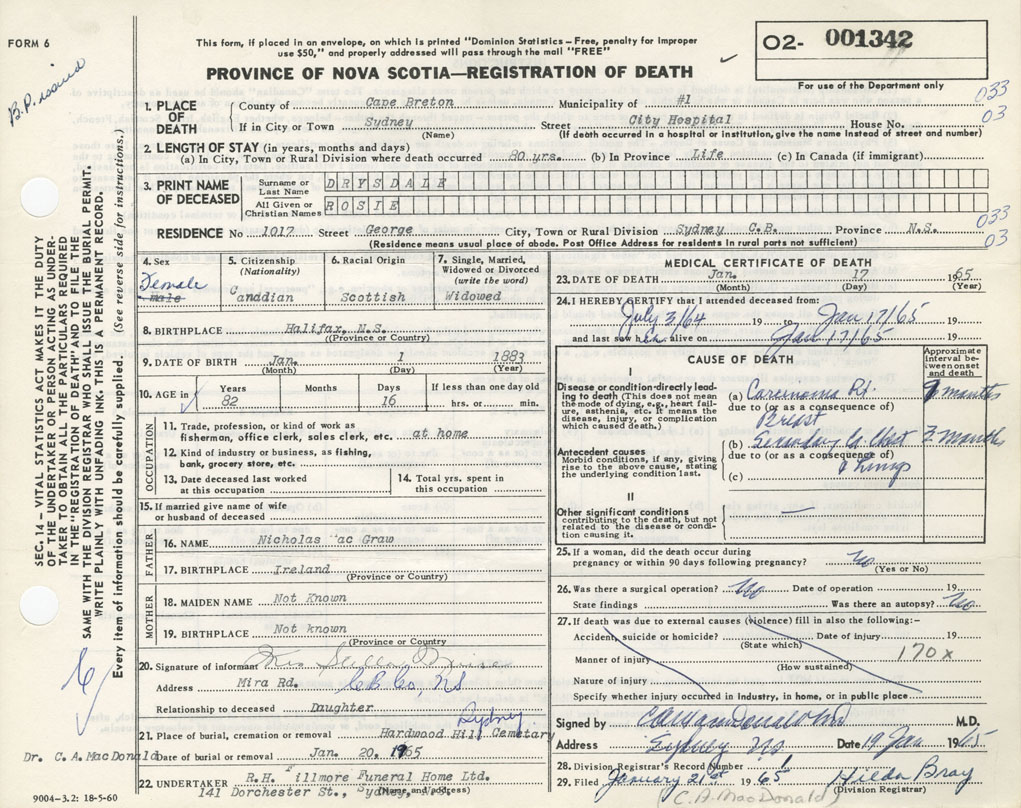 FORM 6
B.P. issued
This form, if placed in an envelope, on which is printed "Dominion Statistics - Free, penalty for improper
use $50," and properly addressed will pass through the mail "FREE"
PROVINCE OF NOVA SCOTIA—REGISTRATION OF DEATH
02- 001342
For use of the Department only
033
03
1. PLACE OF DEATH
County of Cape Breton Municipality of #1
If in City or Town Sydney Street City Hospital House No.
(Name) (If death occurred in a hospital or institution, give the name instead of street and number)
2. LENGTH OF STAY (in years, months and days)
(a) In City, Town or Rural Division where death occurred 80 yrs. (b) In Province Life (c) In Canada (if immigrant)
3. PRINT NAME OF DECEASED
Surname or Last Name DRYSDALE
All Given or Christian Names ROSIE
033
03
RESIDENCE No 1017 Street George City, Town or Rural Division Sydney C.B. Province N.S.
(Residence means usual place of abode. Post Office Address for residents in rural parts not sufficient)
4. Sex
Female
male
5. Citizenship
(Nationality)
Canadian
6. Racial Origin
Scottish
7. Single, Married, Widowed or Divorced
(write the word)
Widowed
8. BIRTHPLACE Halifax, N.S.
((Province or Country)
9. DATE OF BIRTH Jan. 1 1883
(Month) (Day) (Year)
10. AGE in
Years Months Days If less than one day old
82 16 hrs. or min.
OCCUPATION
11. Trade, profession, or kind of work as
fisherman, office clerk, sales clerk, etc. at home
12. Kind of industry or business, as fishing,
bank, grocery store, etc.
13. Date deceased last worked
at this occupation
14. Total yrs. spent in
this occupation
15. If married give name of wife
or husband of deceased
FATHER
16. NAME Nicholas ac Graw
17. BIRTHPLACE Ireland
(Province or Country)
MOTHER
18. MAIDEN NAME Not Known
19. BIRTHPLACE Not known
(Province or Country
20. Signature of informant Mrs
Address Mira Rd. C.B. Co, NS
Relationship to deceased Daughter
21. Place of burial, cremation or removal Hardwood Hill Cemetary Sydney
Date of burial or removal Jan. 20. 1965
Dr. C. A. MacDonald
22. UNDERTAKER R.H. Fillmore Funeral Home Ltd.
141 Dorchester St., Sydney, N.S.
(Name and address)
9004-3.2: 18-5-60
MEDICAL CERTIFICATE OF DEATH
23. DATE OF DEATH Jan. 17 1965
(Month) (Day) (Year)
24. I HEREBY CERTIFY that I attended deceased from:
July 3/64 19 to Jan 17/65 19
and last saw her alive on Jan 17/65 19
CAUSE OF DEATH
Approximate interval between onset and death
I
Disease or condition directly leading to death (This does not mean the mode of dying, e.g., heart failure, asthenia, etc. It means the disease, injury, or complication which caused death.)
(a) Carcinoma Rt. months
due to (or as a consequence of)
Breast
Antecedent causes
Morbid conditions, if any, giving rise to the above cause, stating the underlying condition last.
(b) Secondary Ca Chest months
due to (or as a consequence of)
& lungs
(c)
II
Other significant conditions
contributing to the death, but not related to the disease or condition causing it.
25. If a woman, did the death occur during
pregnancy or within 90 days following pregnancy? No
(Yes or No)
26. Was there a surgical operation? No Date of operation 19
State findings Was there an autopsy? No
27. If death was due to external causes (violence) fill in also the following:-
Accident, suicide or homicide? Date of injury 19
(State which)
Manner of injury 170x
(How sustained)
Nature of injury
Specify whether injury occurred in industry, in home, or in public place
Signed by M.D.
Address Sydney NS Date 19 Jan 1965
28. Division Registrar's Record Number
29. Filed January 21st 1965 Hilda Bray
(Division Registrar)
(C. A. MacDonald)
SEC. 14 - VITAL STATISTICS ACT MAKES IT THE DUTY
OF THE UNDERTAKER OR PERSON ACTING AS UNDER-
TAKER TO OBTAIN ALL THE PARTICULARS REQUIRED
IN THE "REGISTRATION OF DEATH" AND TO FILE THE
SAME WITH THE DIVISION REGISTRAR WHO SHALL ISSUE THE BURIAL PERMIT.
WRITE PLAINLY WITH UNFADING INK. THIS IS A PERMANENT RECORD.
Every item of information should be carefully supplied. (See reverse side for instructions.)